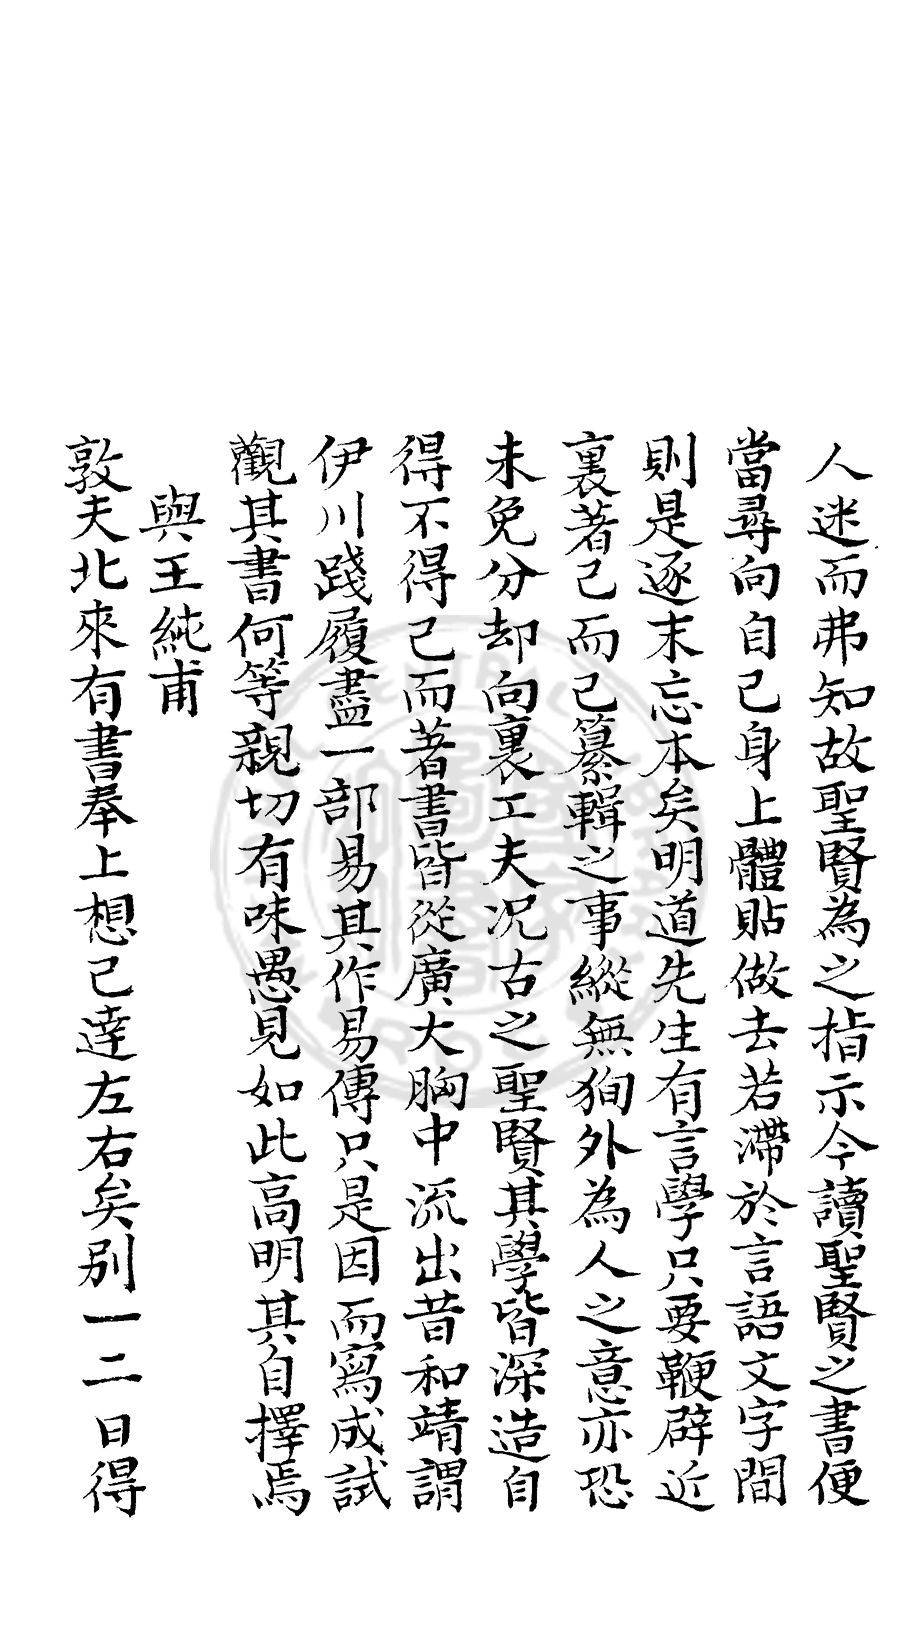 人迷而弗知故聖賢為之指示今讀聖賢之書便
當尋向自己身上體貼做去若滯於言語文字間
則是逐末忘本矣明道先生有言學只要鞭辟近
裏著己而已纂輯之事縱無狥外為人之意亦恐
未免分却向裏工夫况古之聖賢其學皆深造自
得不得已而著書皆從廣大胸中流出昔和靖謂
伊川踐履盡一部易其作易傳只是因而寫成試
觀其書何等親切有味愚見如此高明其自擇焉
與王純甫
敦夫北來有書奉上想已達左右矣别一二日得